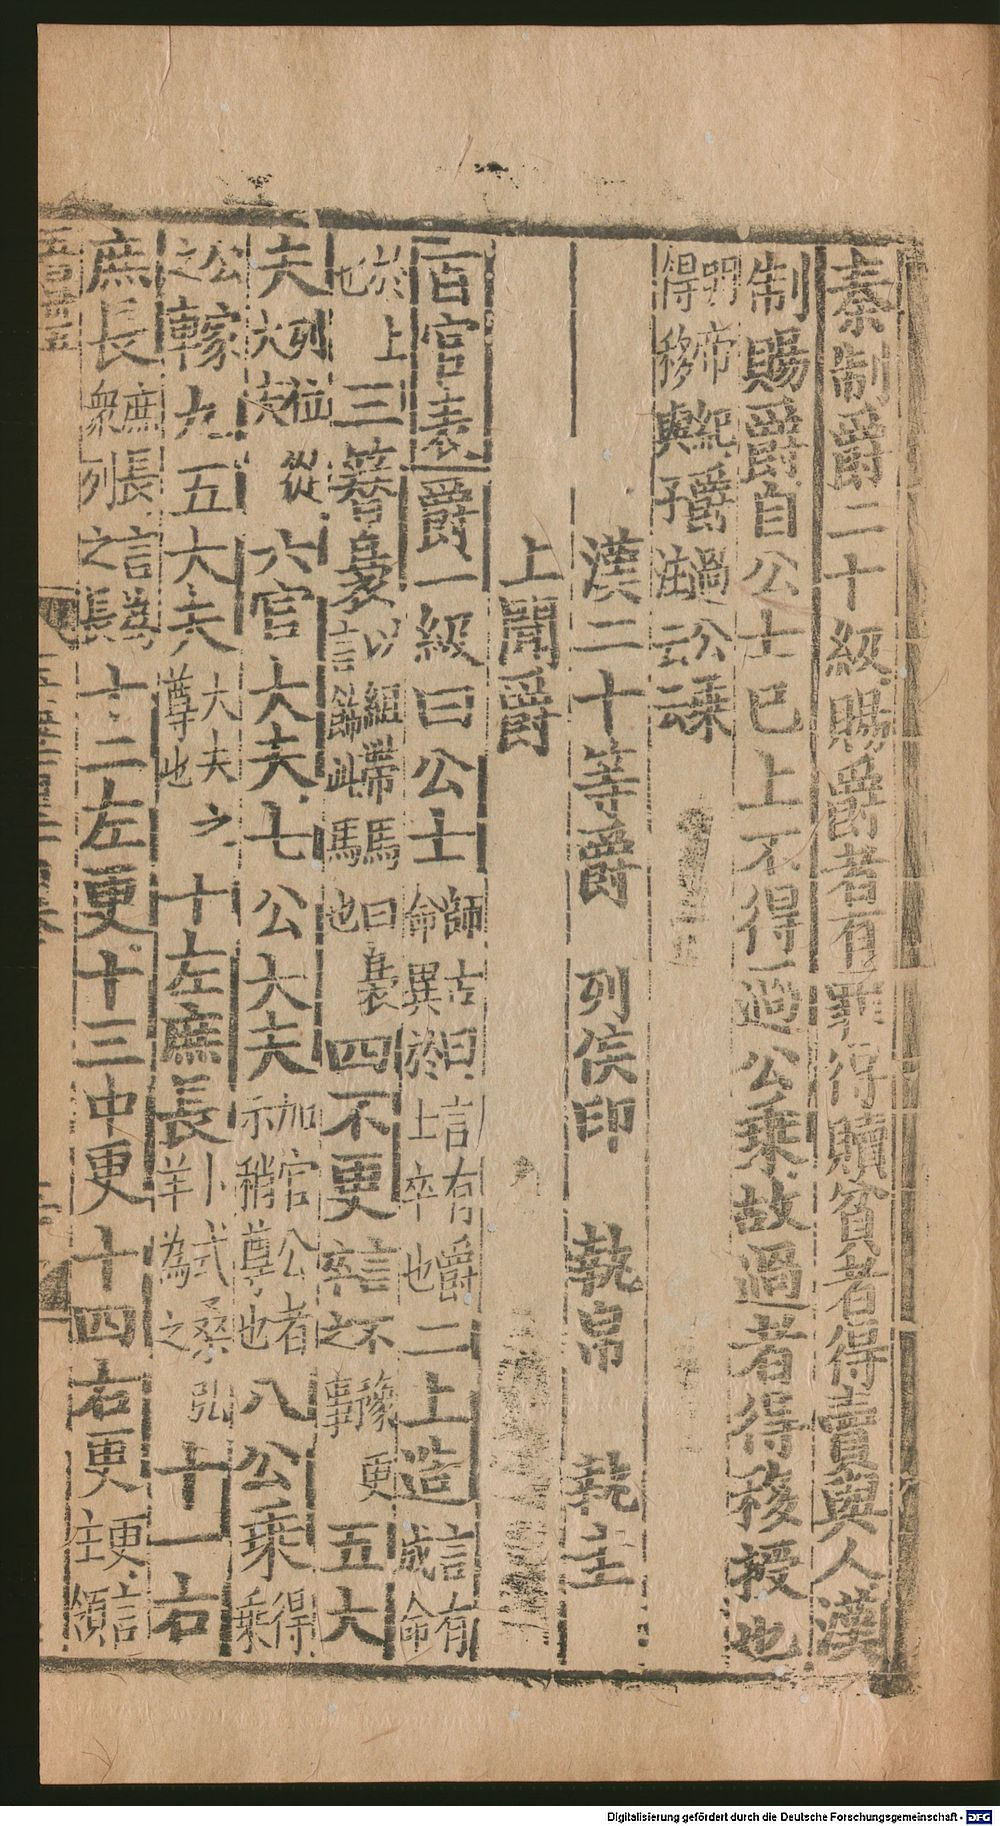 秦制爵二十級賜爵者有罪得贖貧者得賣與人漢
制賜爵自公士已上不得過公乘故過者得移授也
明帝紀爵過公乘
得移與子注云云
漢二十等爵 列侯印 執帛 執圭
上聞爵
百官表爵一級曰公士 師古曰言有爵命異於士卒也 二上造 言有成命
於上也 三簪裊 以組帶馬曰裊言飾此馬也 四不更 言不豫更卒之事 五大
夫 列位從大夫 六官大夫七公大夫 加官公者示稍尊也 八公乘 得乘
公之家 九五大夫 大夫之尊也 十左庶長 卜式桑弘羊為之 十一右
庶長 庶長言為衆列之長 十二左更十三中更十四右更 更言主領